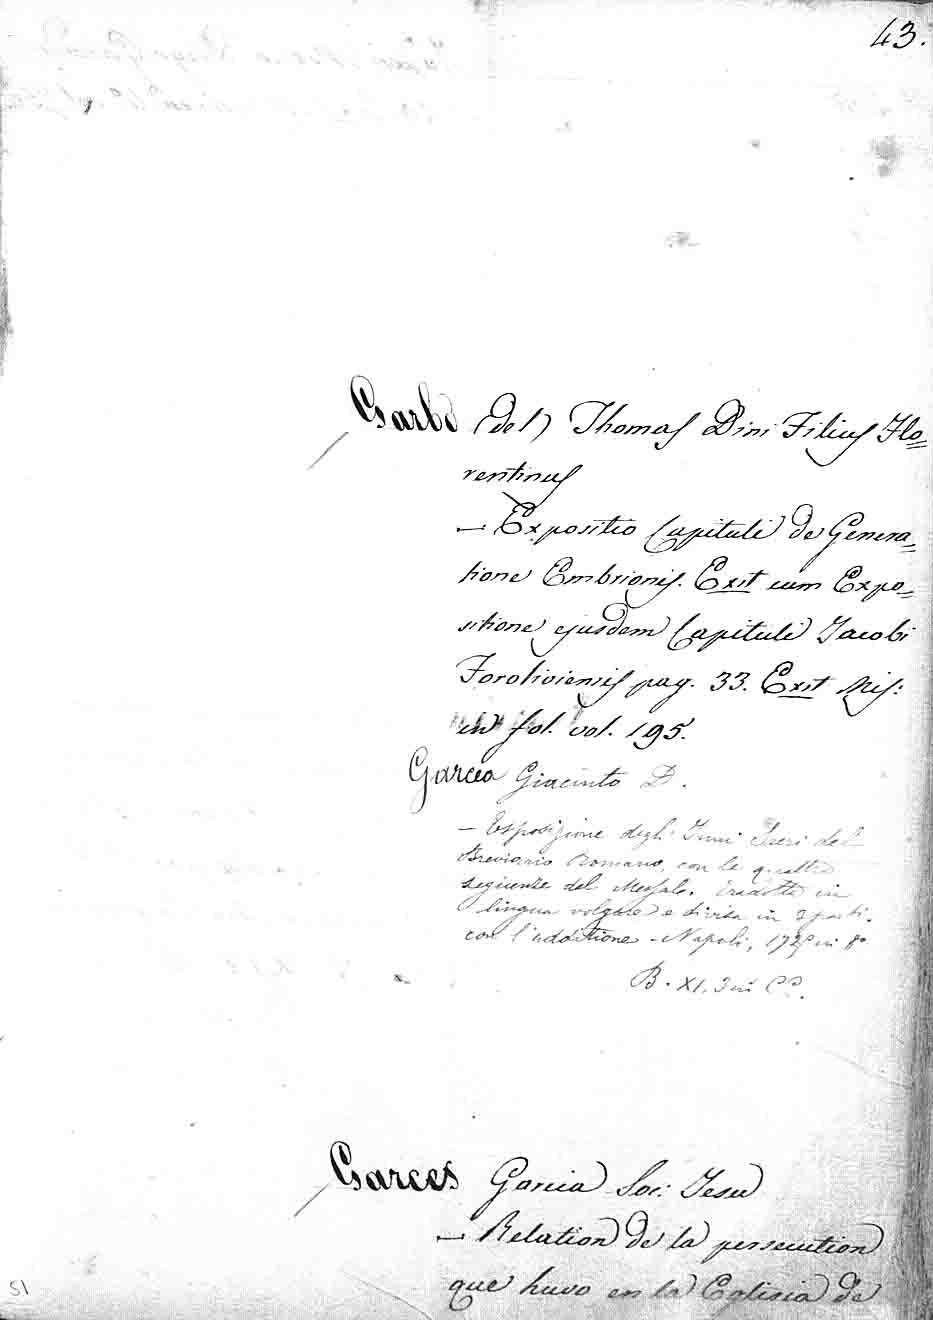 43.
Garbo (del) Thomas Dini Filius Flo=
rentinus
— Expositio Capituli de Genera=
tione Embrionis. Exit cum Expo=
sitione ejusdem Capituli Jacobi
Foroliviensis pag. 33. Exit Mss:
in fol. vol. 195.
Garcea Giacinto D.
— Esposizione degl' Inni Sacri del
Breviario Romano, con le quattro
seguenze del Messale. Tradotte in
lingua volgare e divisa in 3 parti.
con l'additione - Napoli, in 8°
B. XI.
Garces Garcia Soc: Jesu
— Relation de la persecution
que huvo en la Eglisia de
51